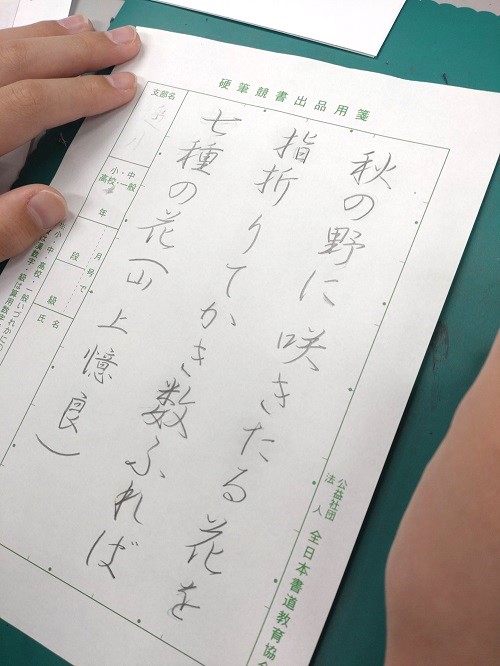 硬筆競書出品用箋
秋の野に咲きたる花を
指折りてかき数ふれば
七種の花(山上憶良)
支部名
小・中
高校・一般
年
月号
段
級
氏名
公益社団
法人
全日本書道教育協会